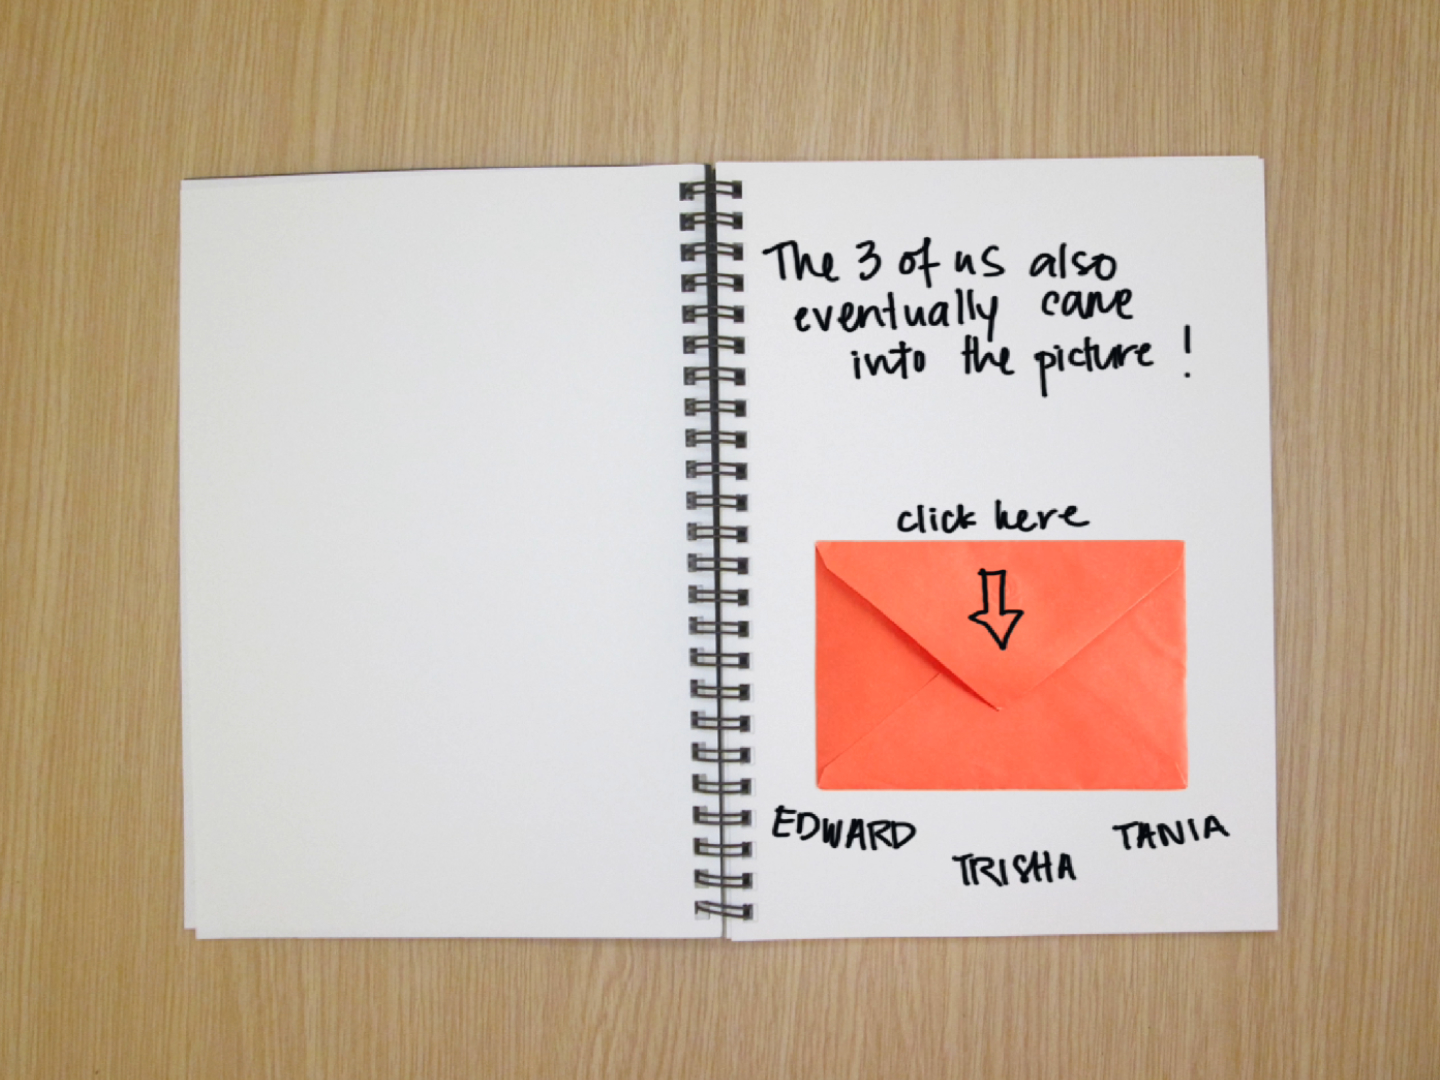 The 3 of us also
eventually came
into the picture !
click here
EDWARD
TRISHA
TANIA